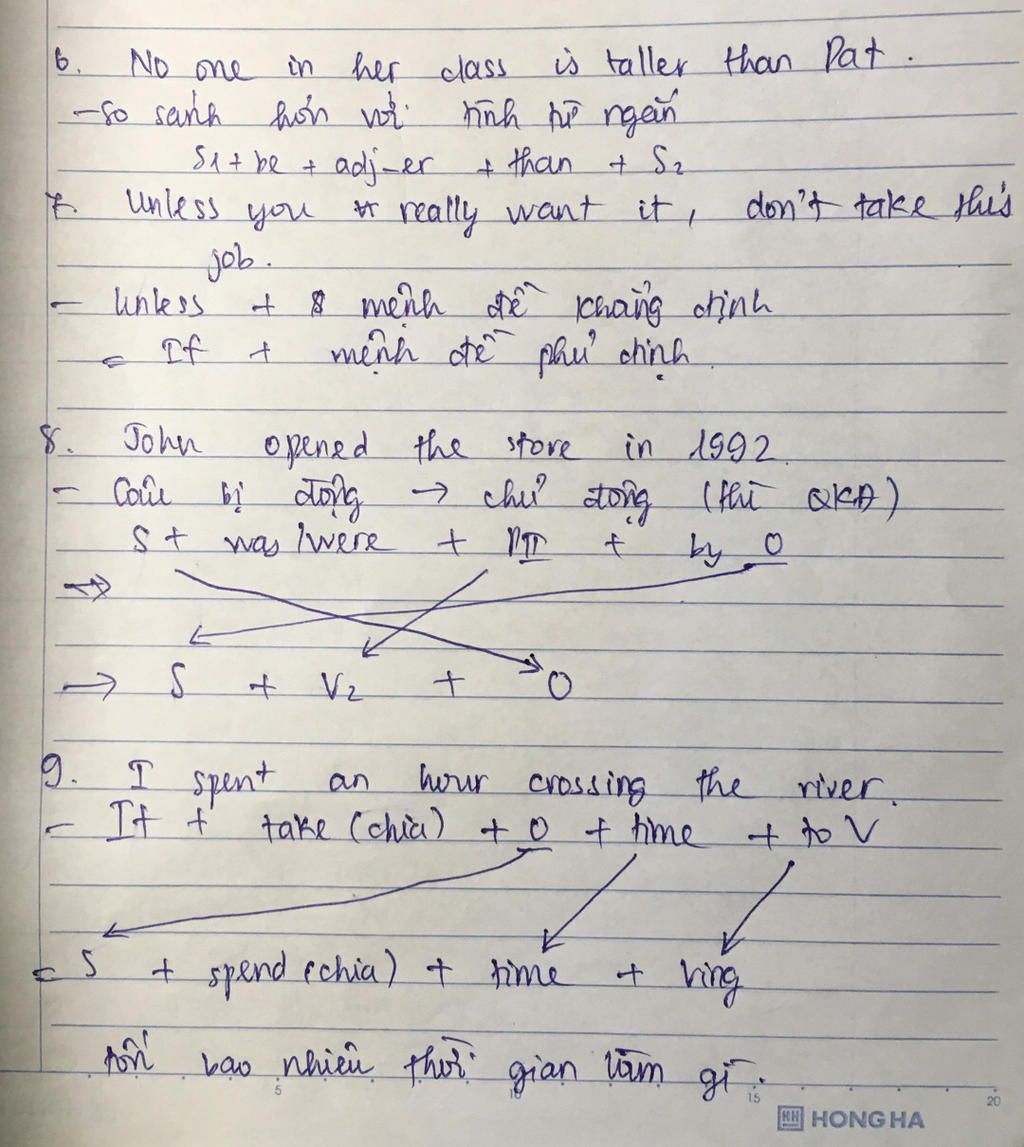 6. No one in her class is taller than Pat.
- So sánh hơn với tính từ ngắn
S1 + be + adj-er + than + S2
7. Unless you really want it, don't take this
job.
- Unless + mệnh đề khẳng định
= If + mệnh đề phủ định
8. John opened the store in 1992.
- Câu bị động → chủ động (thì QKĐ)
S + was/were + PII + by O
⇒
→ S + V2 + O
9. I spent an hour crossing the river.
- It + take (chia) + O + time + to V
= S + spend (chia) + time + Ving
tốn bao nhiêu thời gian làm gì.
5 10 15 20
HH HONG HA